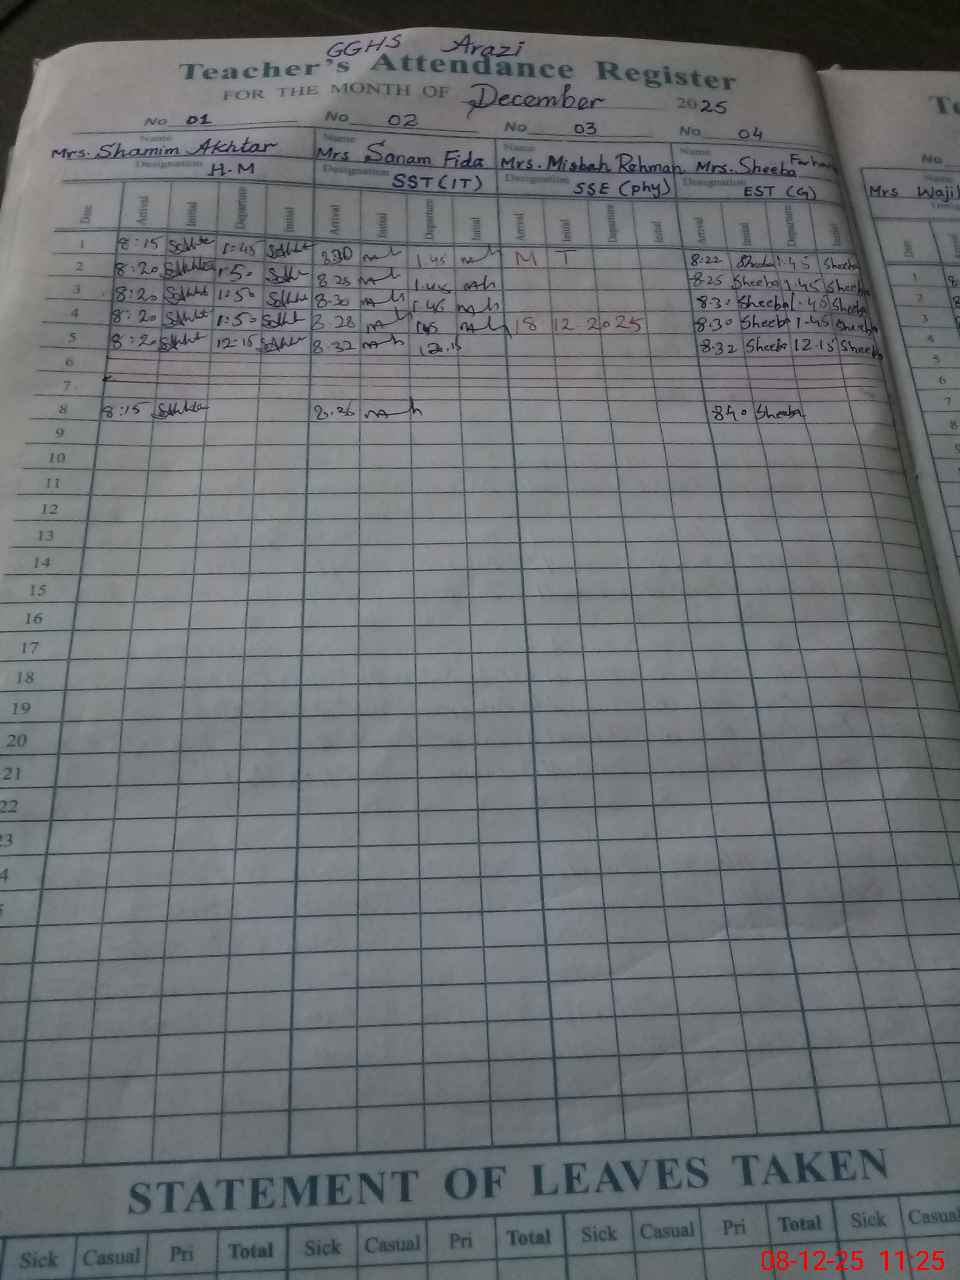 GGHS Arazi
Teacher's Attendance Register
FOR THE MONTH OF December 2025
No 01 No 02 No 03 No 04
Name Name Name Name
Mrs. Shamim Akhtar Mrs Sanam Fida Mrs. Misbah Rehman Mrs. Sheeba Farhan
Designation Designation Designation Designation
H.M SST (IT) SSE (phy) EST (G) Mrs
Date Arrival Initial Departure Initial Arrival Initial Departure Initial Arrival Initial Departure Initial Arrival Initial Departure Initial Date
1 8:15 1:45 1.45 M T 8:22 Sheeba 1:45 Sheeba 1
2 8:20 1:50 8:25 1.45 8:25 Sheeba 1:45 Sheeba 2
3 8:20 1:50 8:30 1.45 8:30 Sheeba 1:45 Sheeba 3
4 8:20 1:50 8.28 1:45 18 12 2025 8:30 Sheeba 1:45 Sheeba 4
5 8:20 12:15 8.32 12.15 8:32 Sheeba 12:15 Sheeba 5
6 6
7 7
8 8:15 8.26 8:40 Sheeba 8
9
10
11
12
13
14
15
16
17
18
19
20
21
22
23
STATEMENT OF LEAVES TAKEN
Sick Casual Pri Total Sick Casual Pri Total Sick Casual Pri Total Sick Casual
08-12-25 11:25